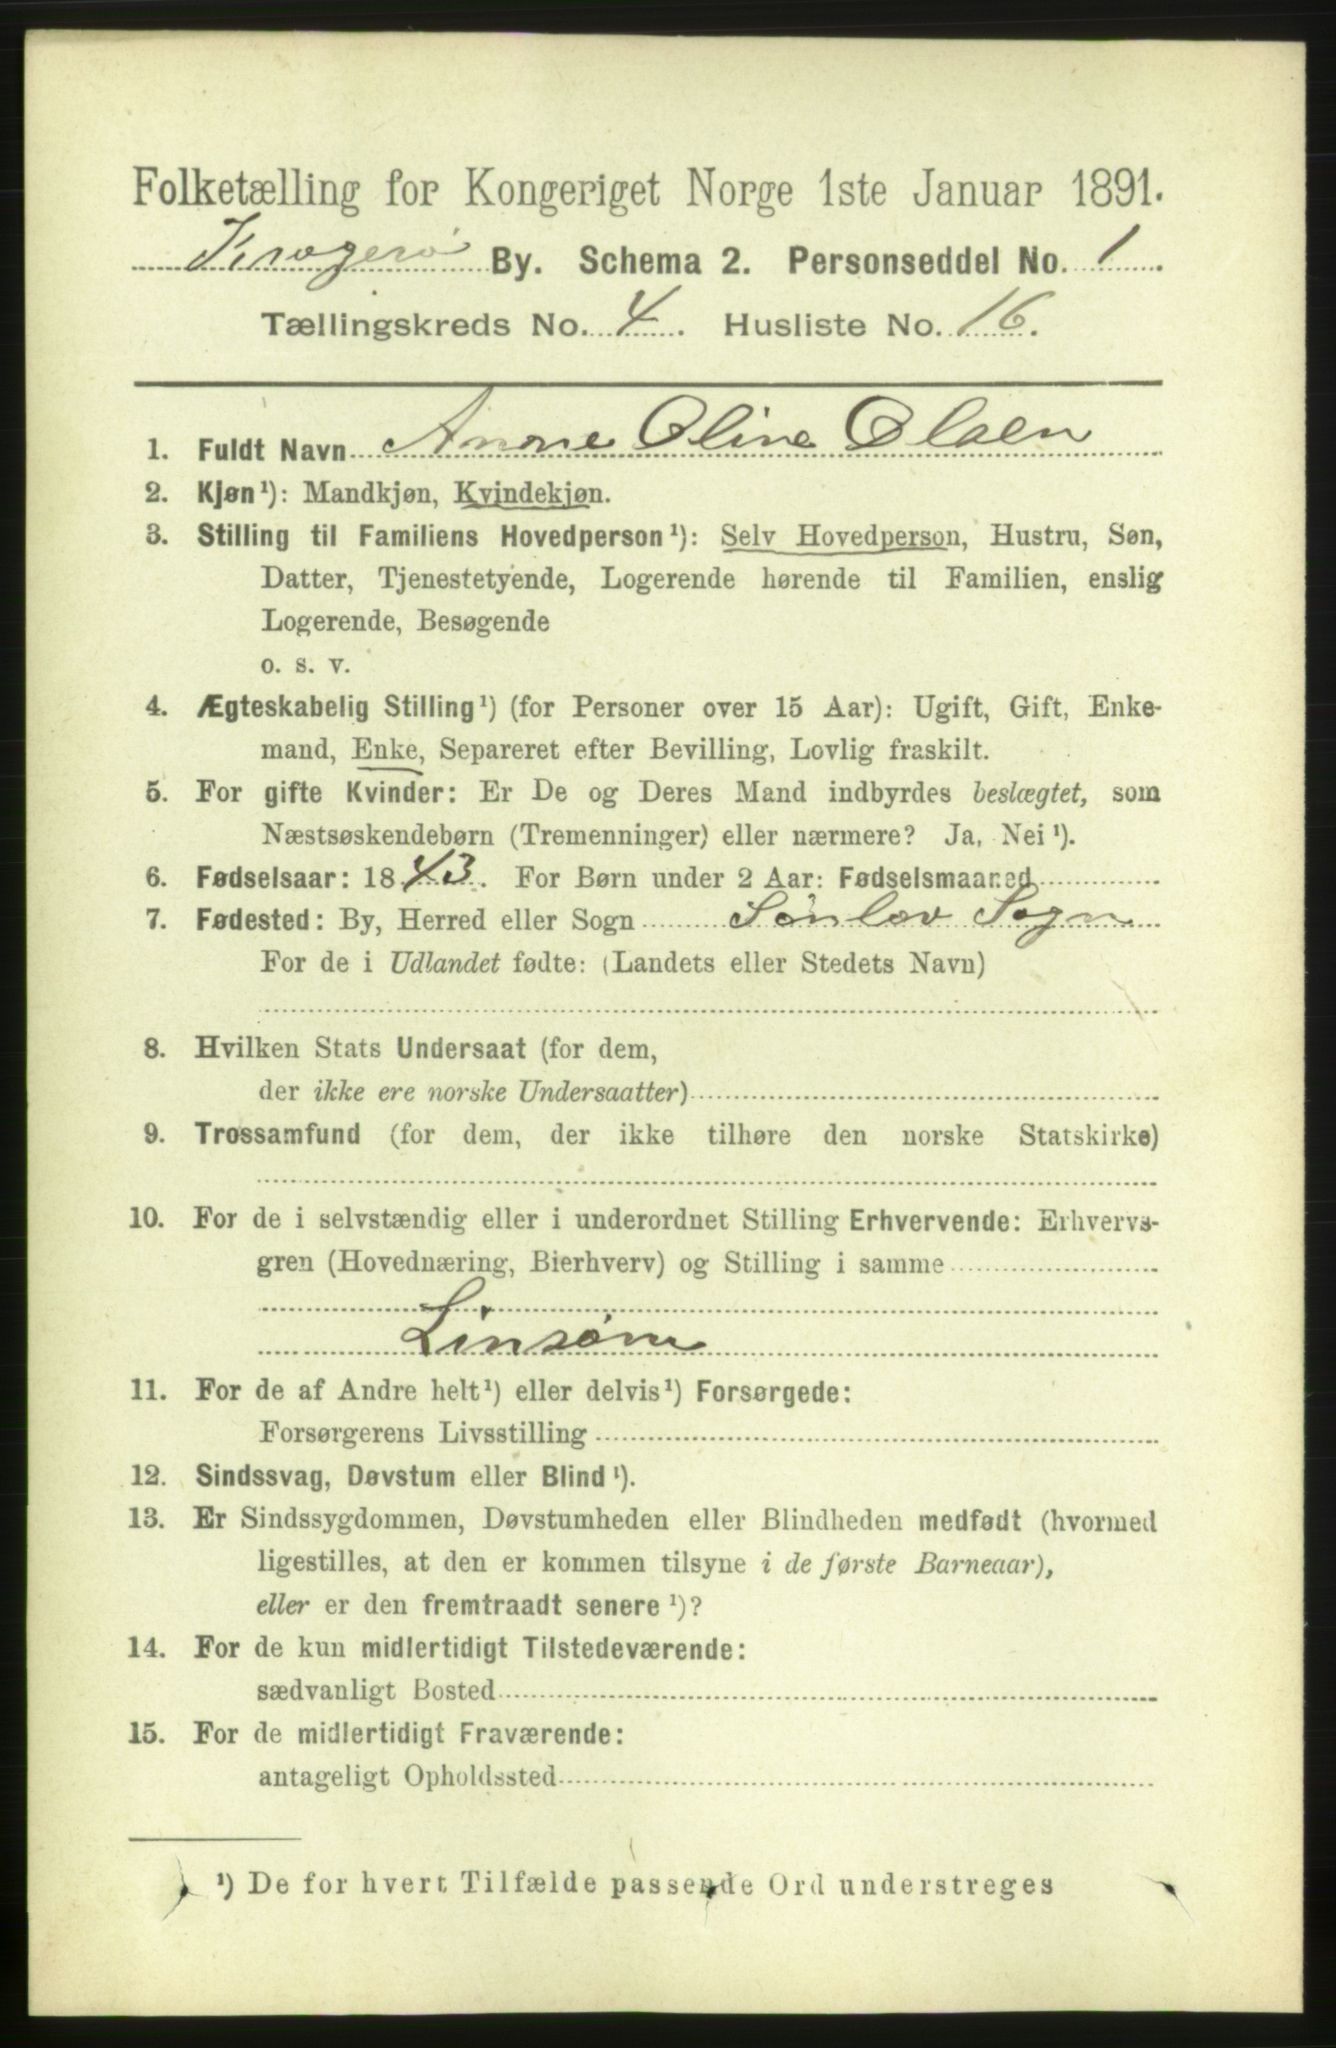 Folketælling for Kongeriget Norge 1ste Januar 1891.
Kragerø By. Schema 2. Personseddel No. 1
Tællingskreds No. 4. Husliste No. 16.
1. Fuldt Navn Anne Oline Olsen
2. Kjøn¹): Mandkjøn, Kvindekjøn.
3. Stilling til Familiens Hovedperson¹): Selv Hovedperson, Hustru, Søn,
Datter, Tjenestetyende, Logerende hørende til Familien, enslig
Logerende, Besøgende
o. s. v.
4. Ægteskabelig Stilling¹) (for Personer over 15 Aar): Ugift, Gift, Enke-
mand, Enke, Separeret efter Bevilling, Lovlig fraskilt.
5. For gifte Kvinder: Er De og Deres Mand indbyrdes beslægtet, som
Næstsøskendebørn (Tremenninger) eller nærmere? Ja, Nei¹).
6. Fødselsaar: 1843. For Børn under 2 Aar: Fødselsmaaned
7. Fødested: By, Herred eller Sogn Sønløv Sogn
For de i Udlandet fødte: (Landets eller Stedets Navn)
8. Hvilken Stats Undersaat (for dem,
der ikke ere norske Undersaatter)
9. Trossamfund (for dem, der ikke tilhøre den norske Statskirke)
10. For de i selvstændig eller i underordnet Stilling Erhvervende: Erhvervs-
gren (Hovednæring, Bierhverv) og Stilling i samme
Linsøm
11. For de af Andre helt¹) eller delvis¹) Forsørgede:
Forsørgerens Livsstilling
12. Sindssvag, Døvstum eller Blind¹).
13. Er Sindssygdommen, Døvstumheden eller Blindheden medfødt (hvormed
ligestilles, at den er kommen tilsyne i de første Barneaar),
eller er den fremtraadt senere¹)?
14. For de kun midlertidigt Tilstedeværende:
sædvanligt Bosted
15. For de midlertidigt Fraværende:
antageligt Opholdssted
¹) De for hvert Tilfælde passende Ord understreges